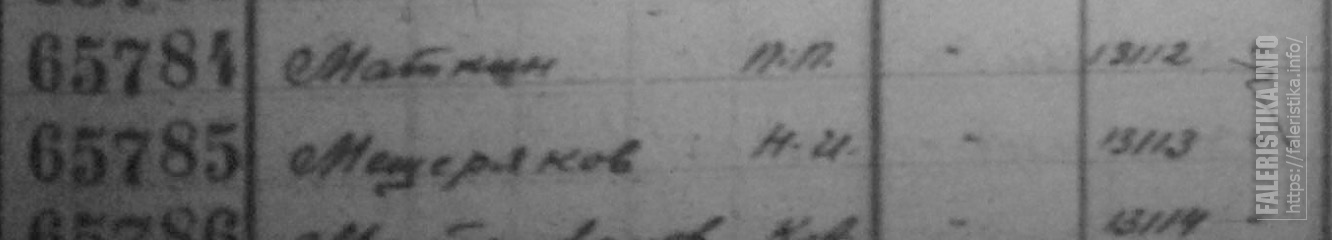 65784 Маткин П.П. - 13112
65785 Мещеряков Н.И. - 13113
65786 К.В. - 13114
FALERISTIKA.INFO
https://faleristika.info/